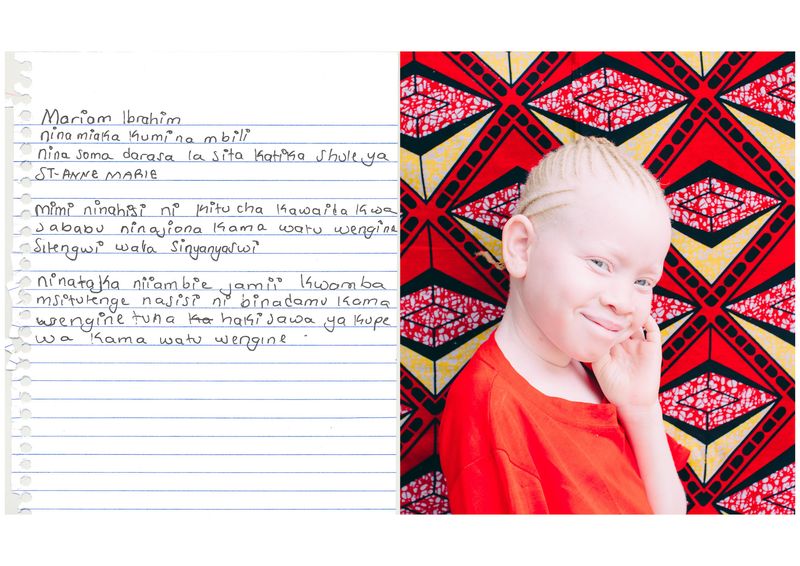 Mariam Ibrahim
nina miaka kumi na mbili
nina soma darasa la sita katika shule ya
ST-ANNE MARIE
mimi ninahisi ni kitu cha kawaida kwa
sababu ninajiona kama watu wengine
Sitengwi wala Sinyanyaswi
ninataka niiambie jamii kwamba
msitutenge nasisi ni binadamu kama
wengine tuna haki sawa ya kupe
wa kama watu wengine.